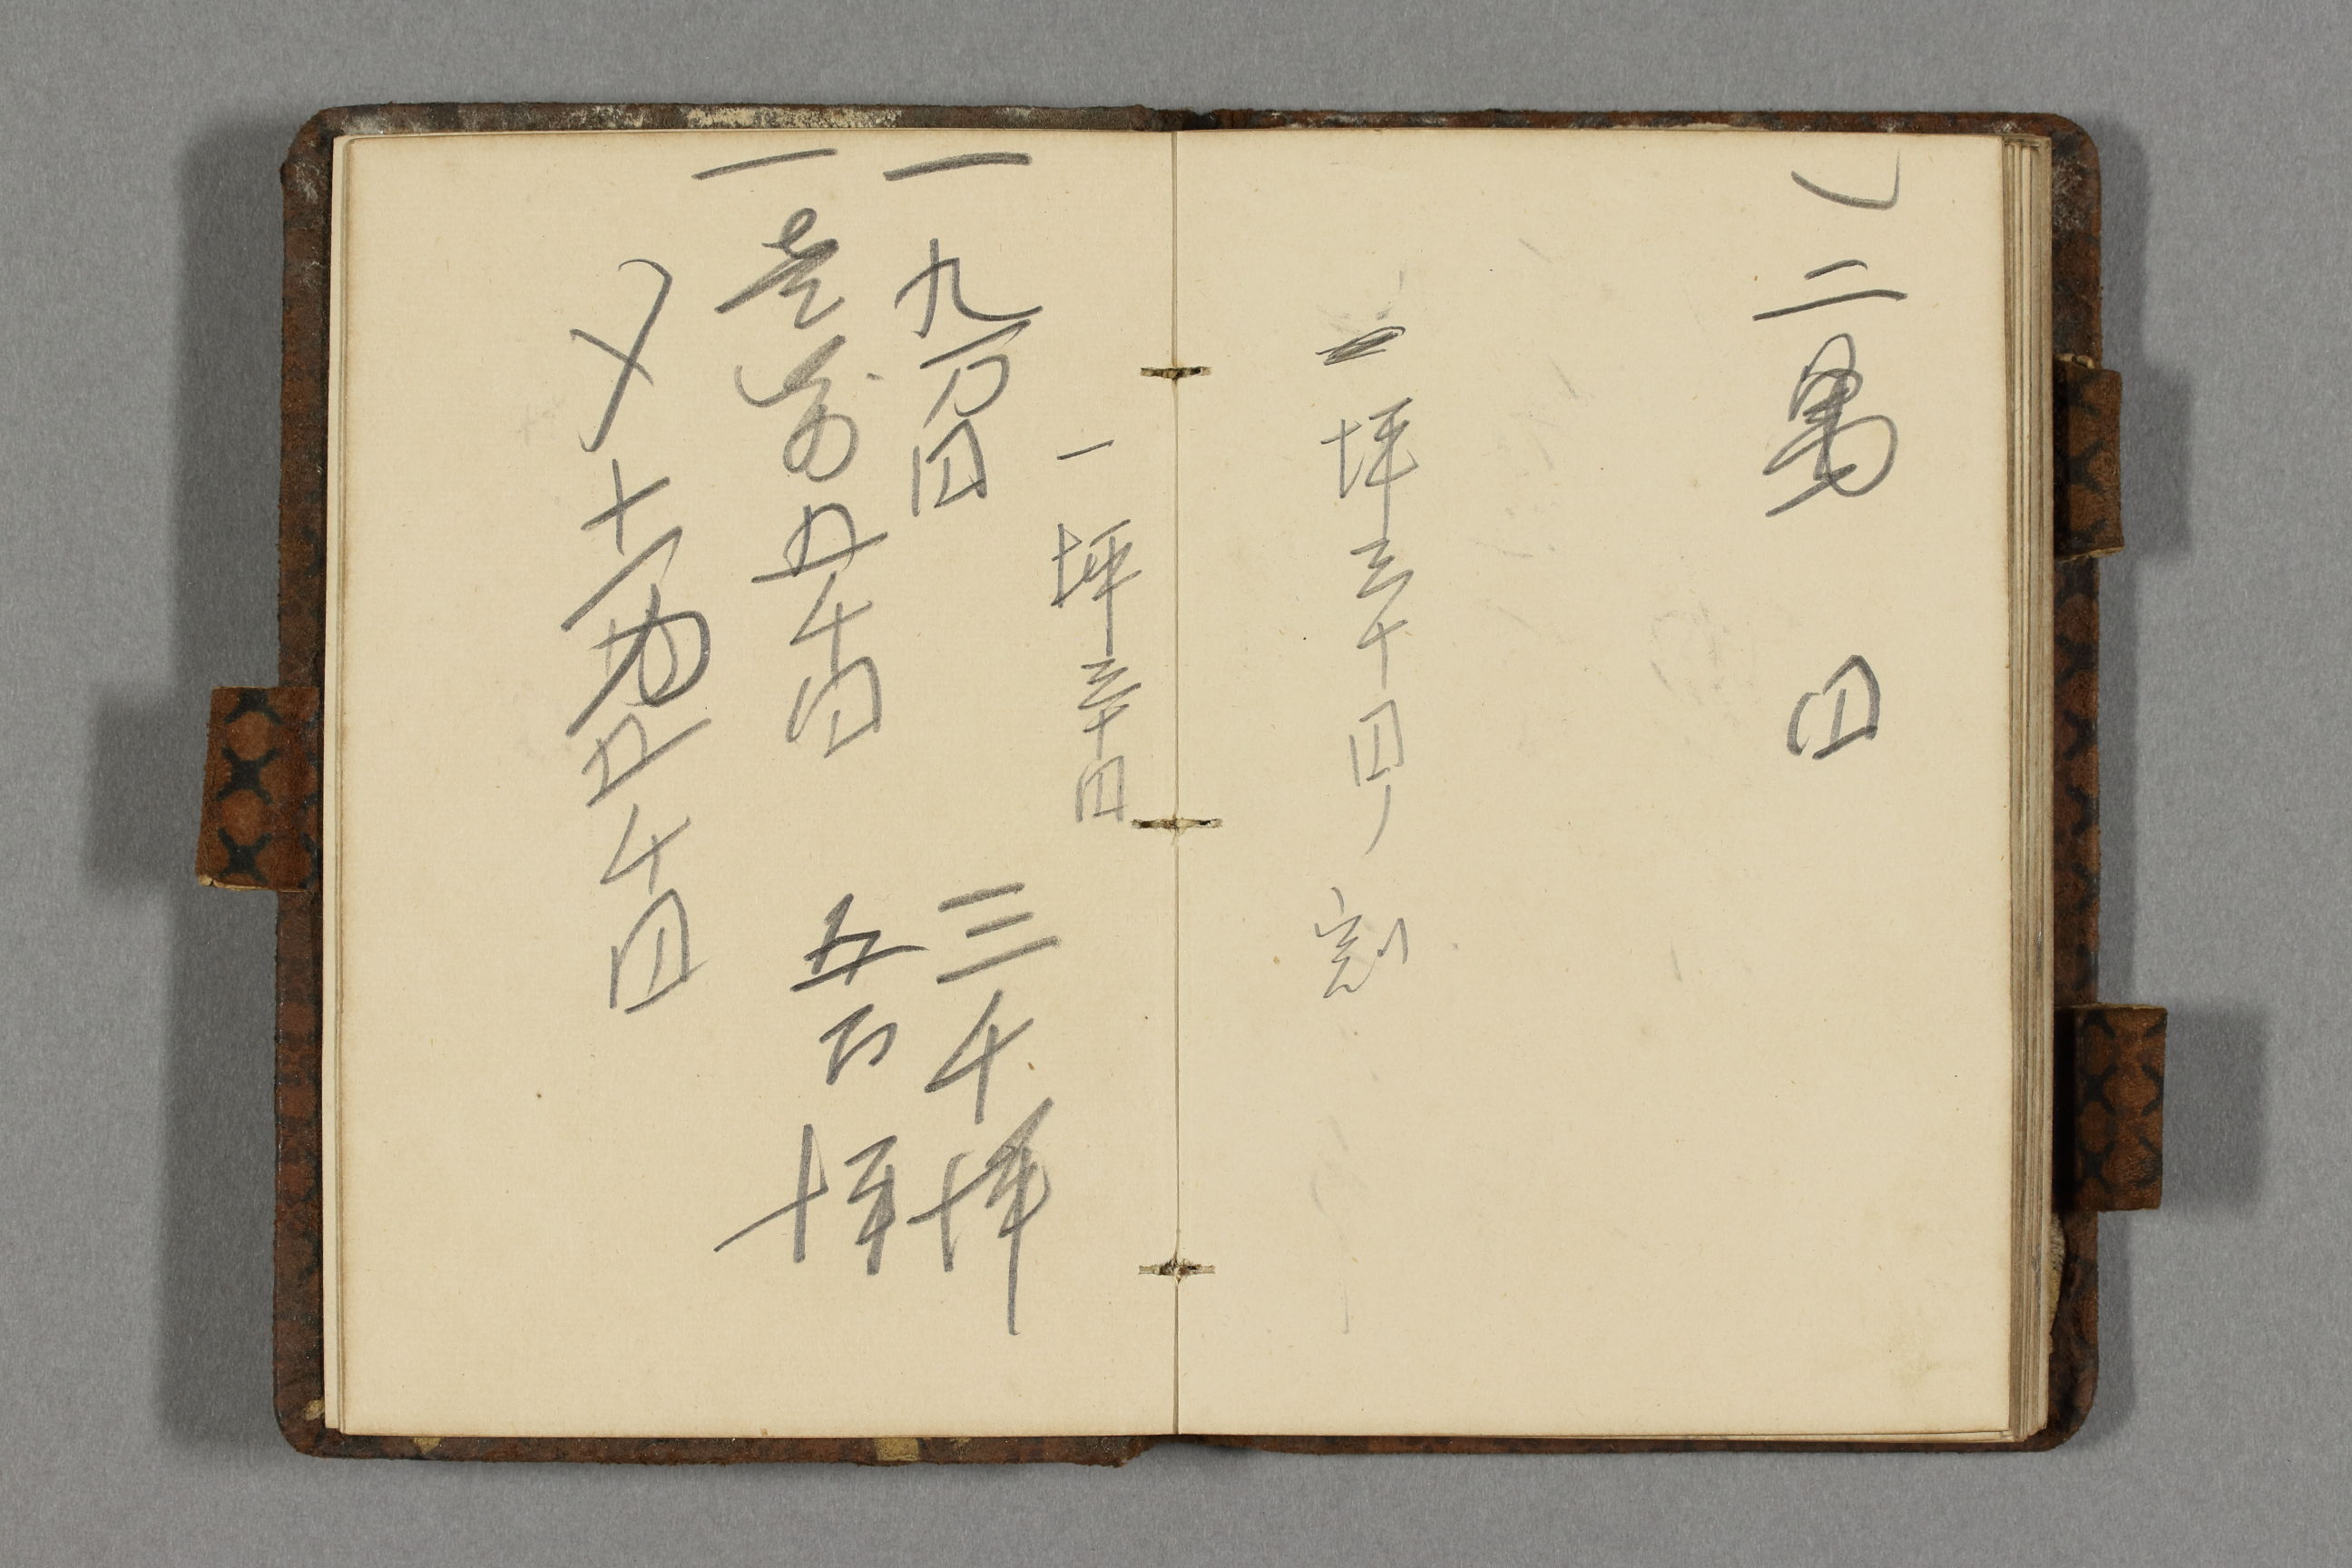 〆二萬円
一坪三十円ノ割
一坪三十円
一九万円
三千坪
一壱万五千円
五百坪
〆十万五千円